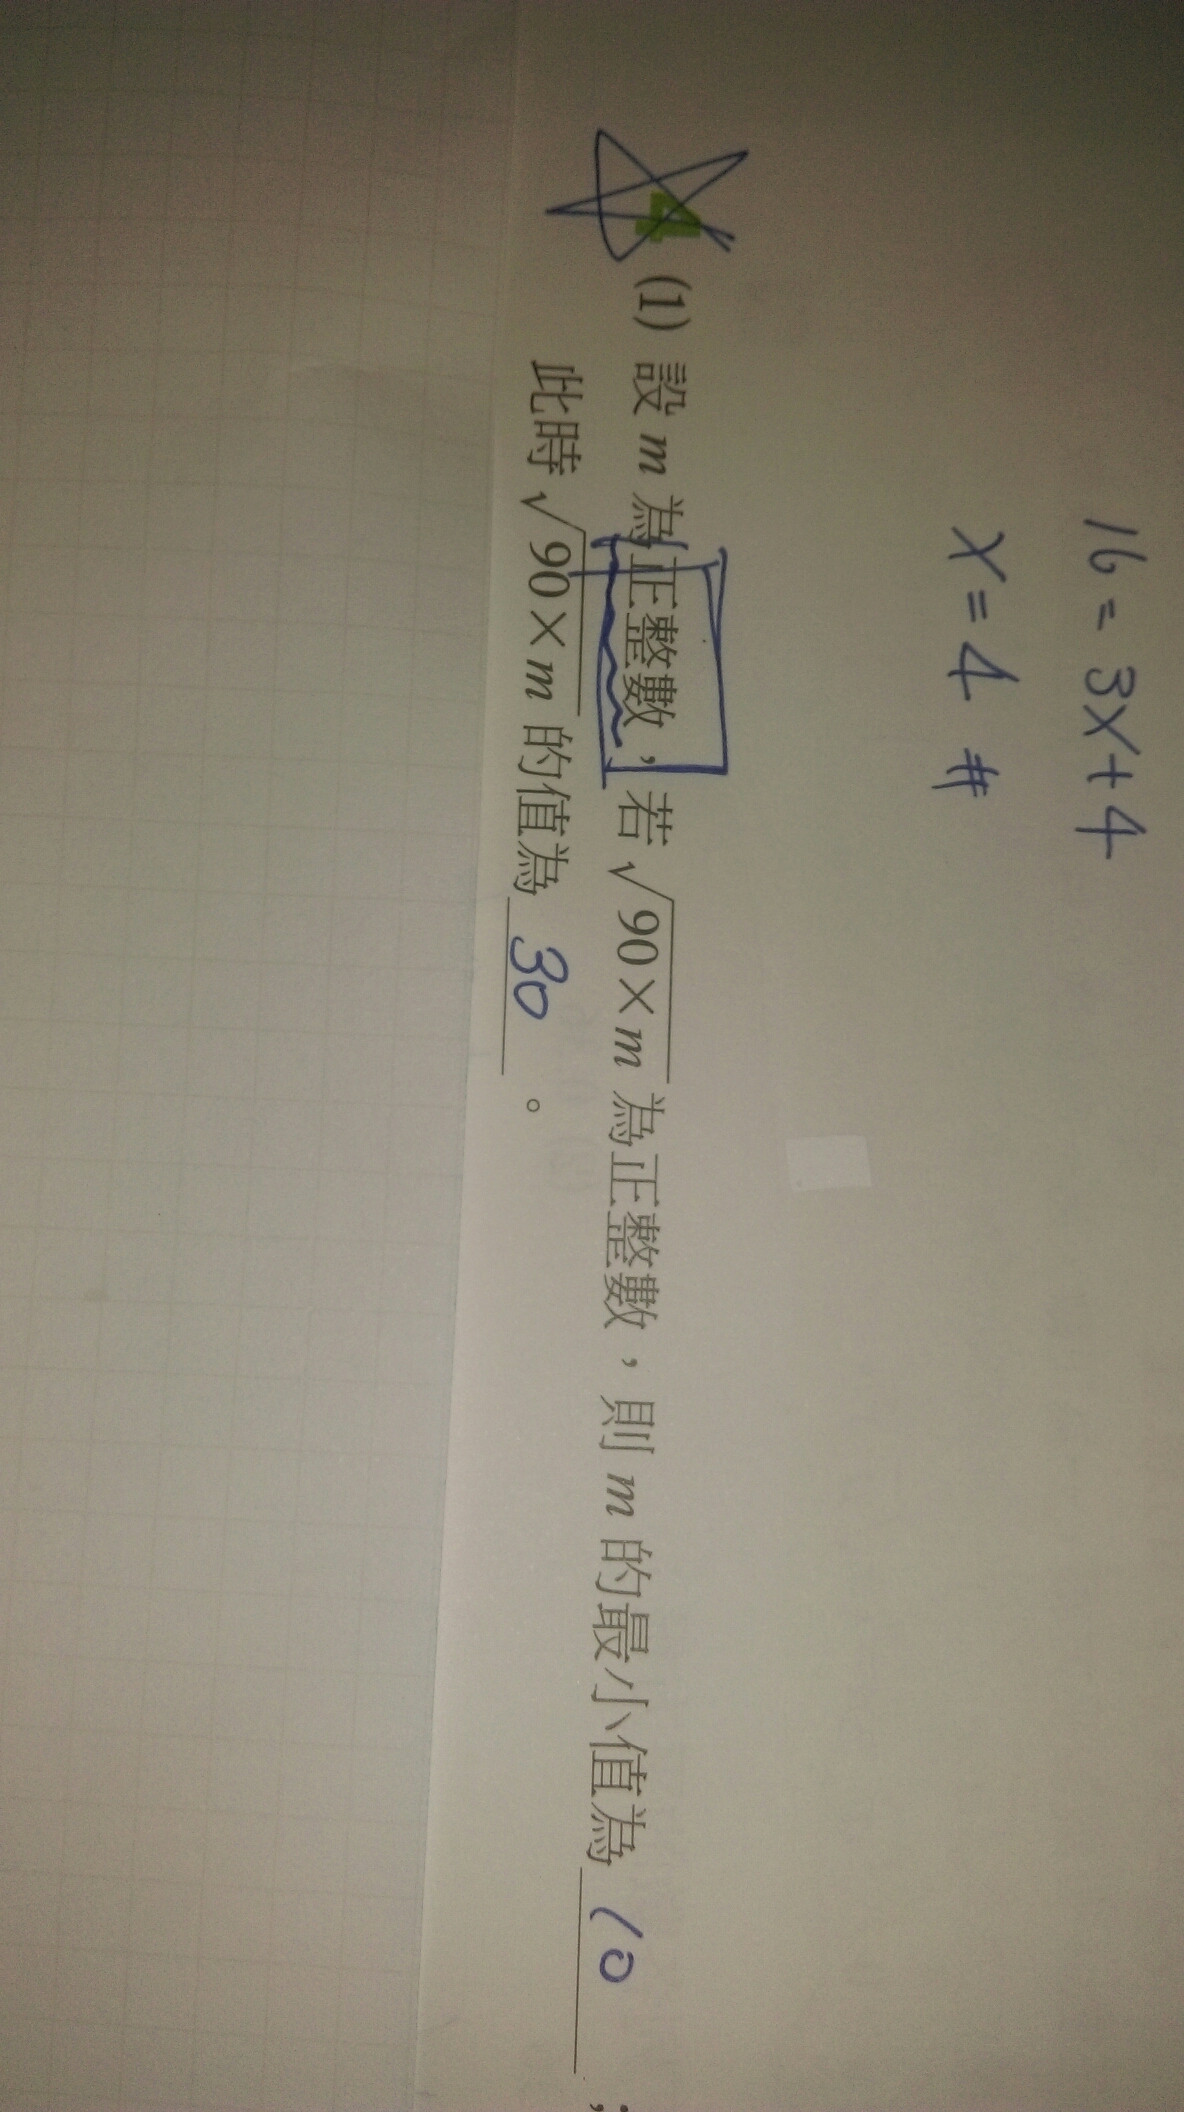 16 = 3x+4
x = 4 #
4 (1) 設 m 為正整數，若 √90×m 為正整數，則 m 的最小值為 10 ；
此時 √90×m 的值為 30 。